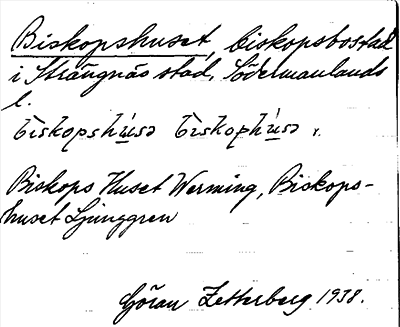 Biskopshuset, biskopsbostad
i Strängnäs stad, Södermanlands
l.
biskopshúsə biskophúsə v.
Biskops Huset Werming, Biskops-
huset Ljunggren
Göran Zetterberg 1938.